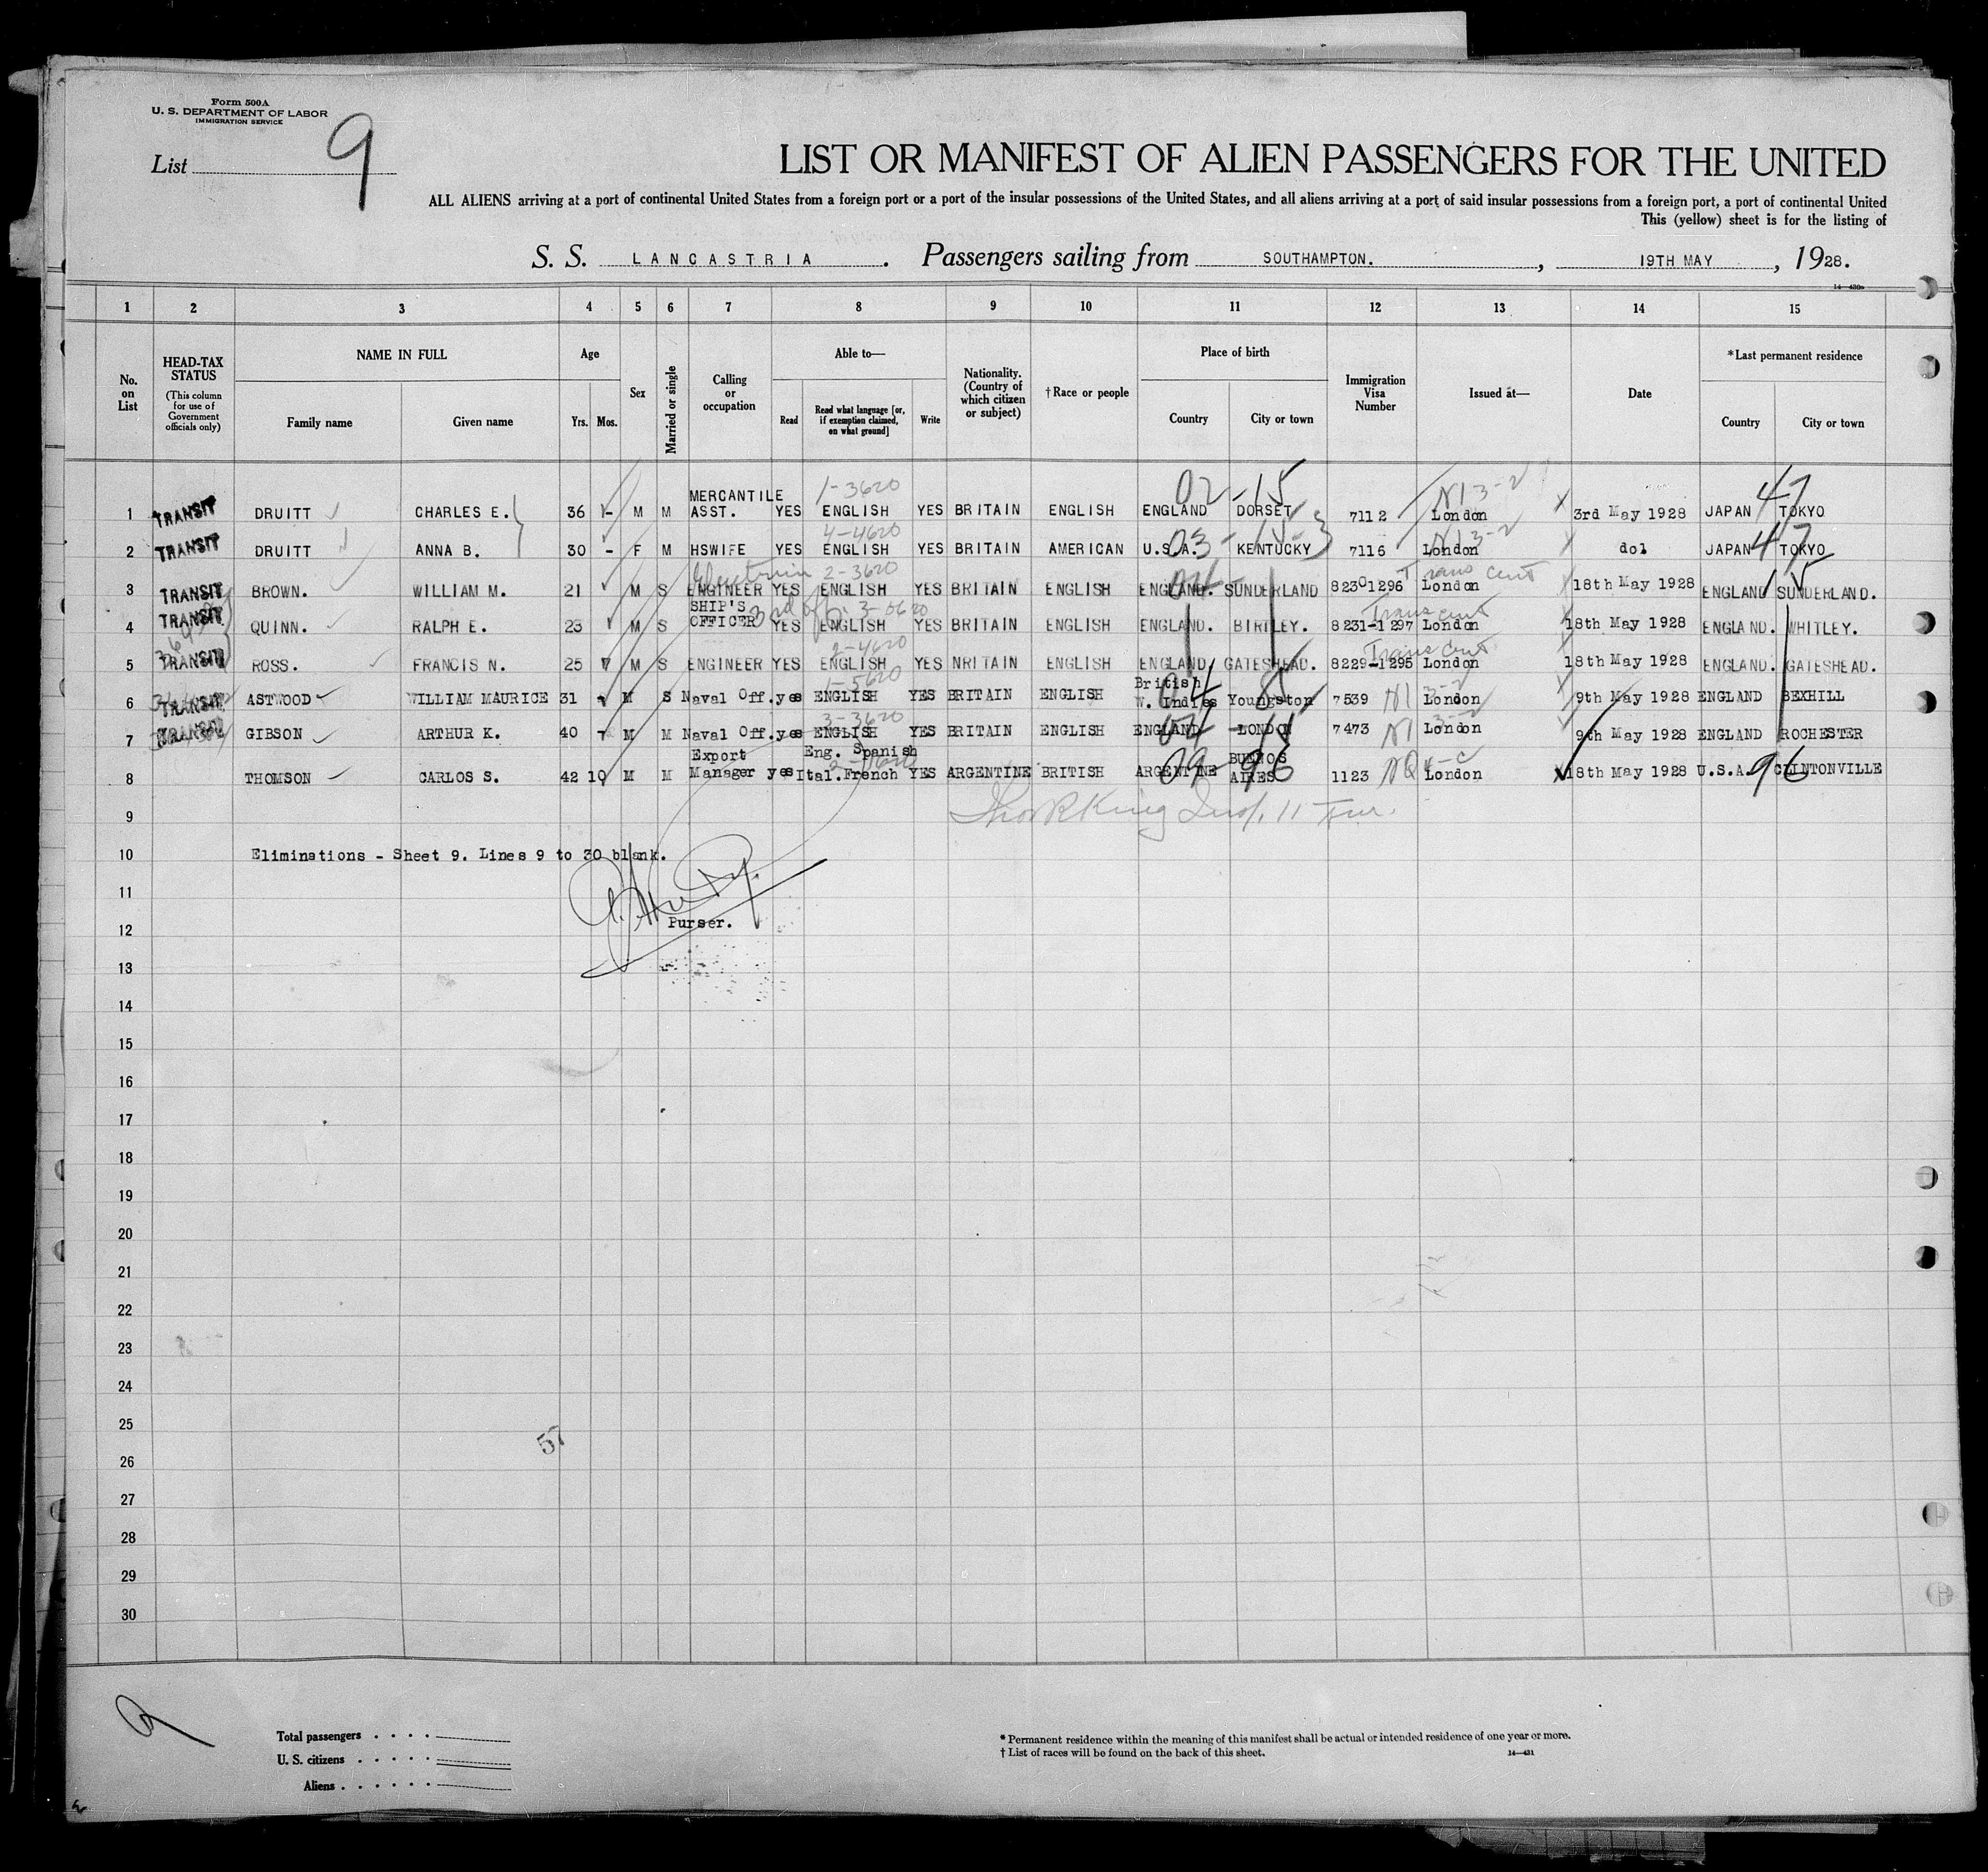 Form 500A
U. S. DEPARTMENT OF LABOR
IMMIGRATION SERVICE
List 9
LIST OR MANIFEST OF ALIEN PASSENGERS FOR THE UNITED
ALL ALIENS arriving at a port of continental United States from a foreign port or a port of the insular possessions of the United States, and all aliens arriving at a port of said insular possessions from a foreign port, a port of continental United
This (yellow) sheet is for the listing of
S. S. LANCASTRIA. Passengers sailing from SOUTHAMPTON. , 19TH MAY , 1928.
14—430a
1 2 3 4 5 6 7 8 9 10 11 12 13 14 15
No. on List
HEAD-TAX STATUS (This column for use of Government officials only)
NAME IN FULL Family name Given name
Age Yrs. Mos.
Sex
Married or single
Calling or occupation
Able to— Read Read what language [or, if exemption claimed, on what ground] Write
Nationality. (Country of which citizen or subject)
† Race or people
Place of birth Country City or town
Immigration Visa Number
Issued at—
Date
* Last permanent residence Country City or town
1-3620 02-15 N13-2 47
1 TRANSIT DRUITT CHARLES E. 36 - M M MERCANTILE ASST. YES ENGLISH YES BRITAIN ENGLISH ENGLAND DORSET 7112 London 3rd May 1928 JAPAN TOKYO
4-4620 03-15 N13-2 47
2 TRANSIT DRUITT ANNA B. 30 - F M HSWIFE YES ENGLISH YES BRITAIN AMERICAN U.S.A. KENTUCKY 7116 London do1 JAPAN TOKYO
2-3620 04 Trans cert
3 TRANSIT BROWN. WILLIAM M. 21 M S ENGINEER YES ENGLISH YES BRITAIN ENGLISH ENGLAND. SUNDERLAND 8230 1296 London 18th May 1928 ENGLAND SUNDERLAND.
3rd off. 3-0620 Trans cert
4 TRANSIT QUINN. RALPH E. 23 M S SHIP'S OFFICER YES ENGLISH YES BRITAIN ENGLISH ENGLAND. BIRTLEY. 8231-1297 London 18th May 1928 ENGLAND. WHITLEY.
2-4620 Trans cert
5 TRANSIT ROSS. FRANCIS N. 25 M S ENGINEER YES ENGLISH YES NRITAIN ENGLISH ENGLAND. GATESHEAD. 8229-1295 London 18th May 1928 ENGLAND. GATESHEAD.
1-5620 04
6 TRANSIT ASTWOOD WILLIAM MAURICE 31 M S Naval Off. yes ENGLISH YES BRITAIN ENGLISH British W. Indies Youngston 7539 N1 3-2 London 9th May 1928 ENGLAND BEXHILL
3-3620 04
7 TRANSIT GIBSON ARTHUR K. 40 M M Naval Off. yes ENGLISH YES BRITAIN ENGLISH ENGLAND LONDON 7473 N1 3-2 London 9th May 1928 ENGLAND ROCHESTER
09-96 96
8 THOMSON CARLOS S. 42 10 M M Export Manager yes Eng. Spanish Ital. French YES ARGENTINE BRITISH ARGENTINE BUENOS AIRES 1123 NQ London 18th May 1928 U.S.A. CLINTONVILLE
9
10 Eliminations - Sheet 9. Lines 9 to 30 blank.
11
12 Purser.
13
14
15
16
17
18
19
20
21
22
23
24
25
57
26
27
28
29
30
9
Total passengers
U. S. citizens
Aliens
* Permanent residence within the meaning of this manifest shall be actual or intended residence of one year or more.
† List of races will be found on the back of this sheet. 14—431